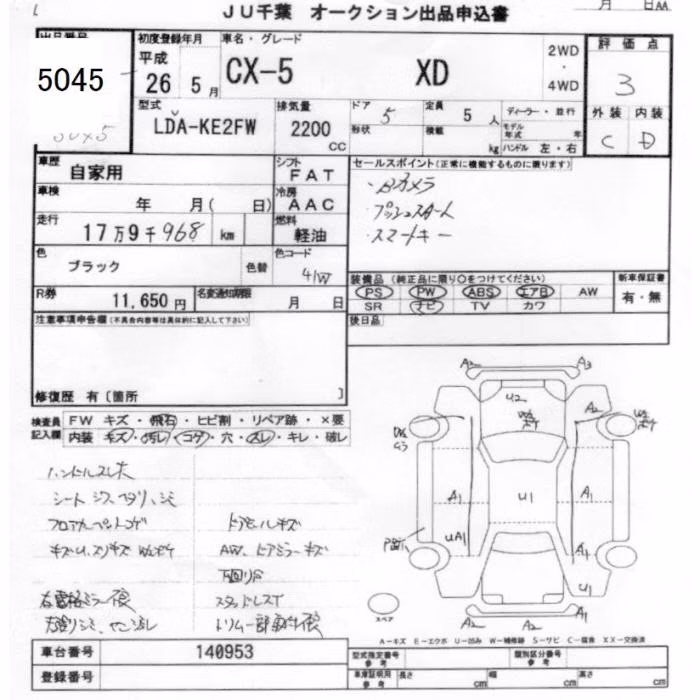 JU千葉 オークション出品申込書
月 日AA
出品番号
5045
初度登録年月
平成
26 5 月
車名・グレード
CX-5 XD
2WD
・
4WD
評価点
3
外装 内装
C D
型式
LDA-KE2FW
排気量
2200
CC
ドア 5
形状
定員 5 人
積載 kg
ディーラー・並行
モデル年式 年
ハンドル 左・右
車歴
自家用
シフト
FAT
車検
年 月( 日)
冷房
AAC
走行
17万9千968 km
燃料
軽油
色
ブラック
色替
色コード
41W
R券
11,650 円
名変通知期限
月 日
セールスポイント(正常に機能するものに限ります)
・Bカメラ
・プッシュスタート
・スマートキー
装備品 (純正品に限り○をつけてください)
PS PW ABS エアB AW
SR ナビ TV カワ
新車保証書
有・無
後日品
注意事項申告欄(不具合内容等は具体的に記入して下さい)
修復歴 有〔箇所 〕
検査員
記入欄
FW キズ・飛石・ヒビ割・リペア跡・×要
内装 キズ・汚レ・コゲ・穴・スレ・キレ・破レ
ハンドルスレ大
シートシワ、ヘタリ、シミ
ドアモールキズ
AW、ドアミラーキズ
下回りサビ
スタッドレスT
A2 A3
U2
A2
A1 U1 A1
UA1 A1
U1
A2 A2
スペア
A-キズ E-エクボ U-凹み W-補修跡 S-サビ C-腐食 XX-交換済
車台番号
140953
登録番号
型式指定番号
参考
類別区分番号
参考
車庫証明用
参考
長さ cm 幅 cm 高さ cm